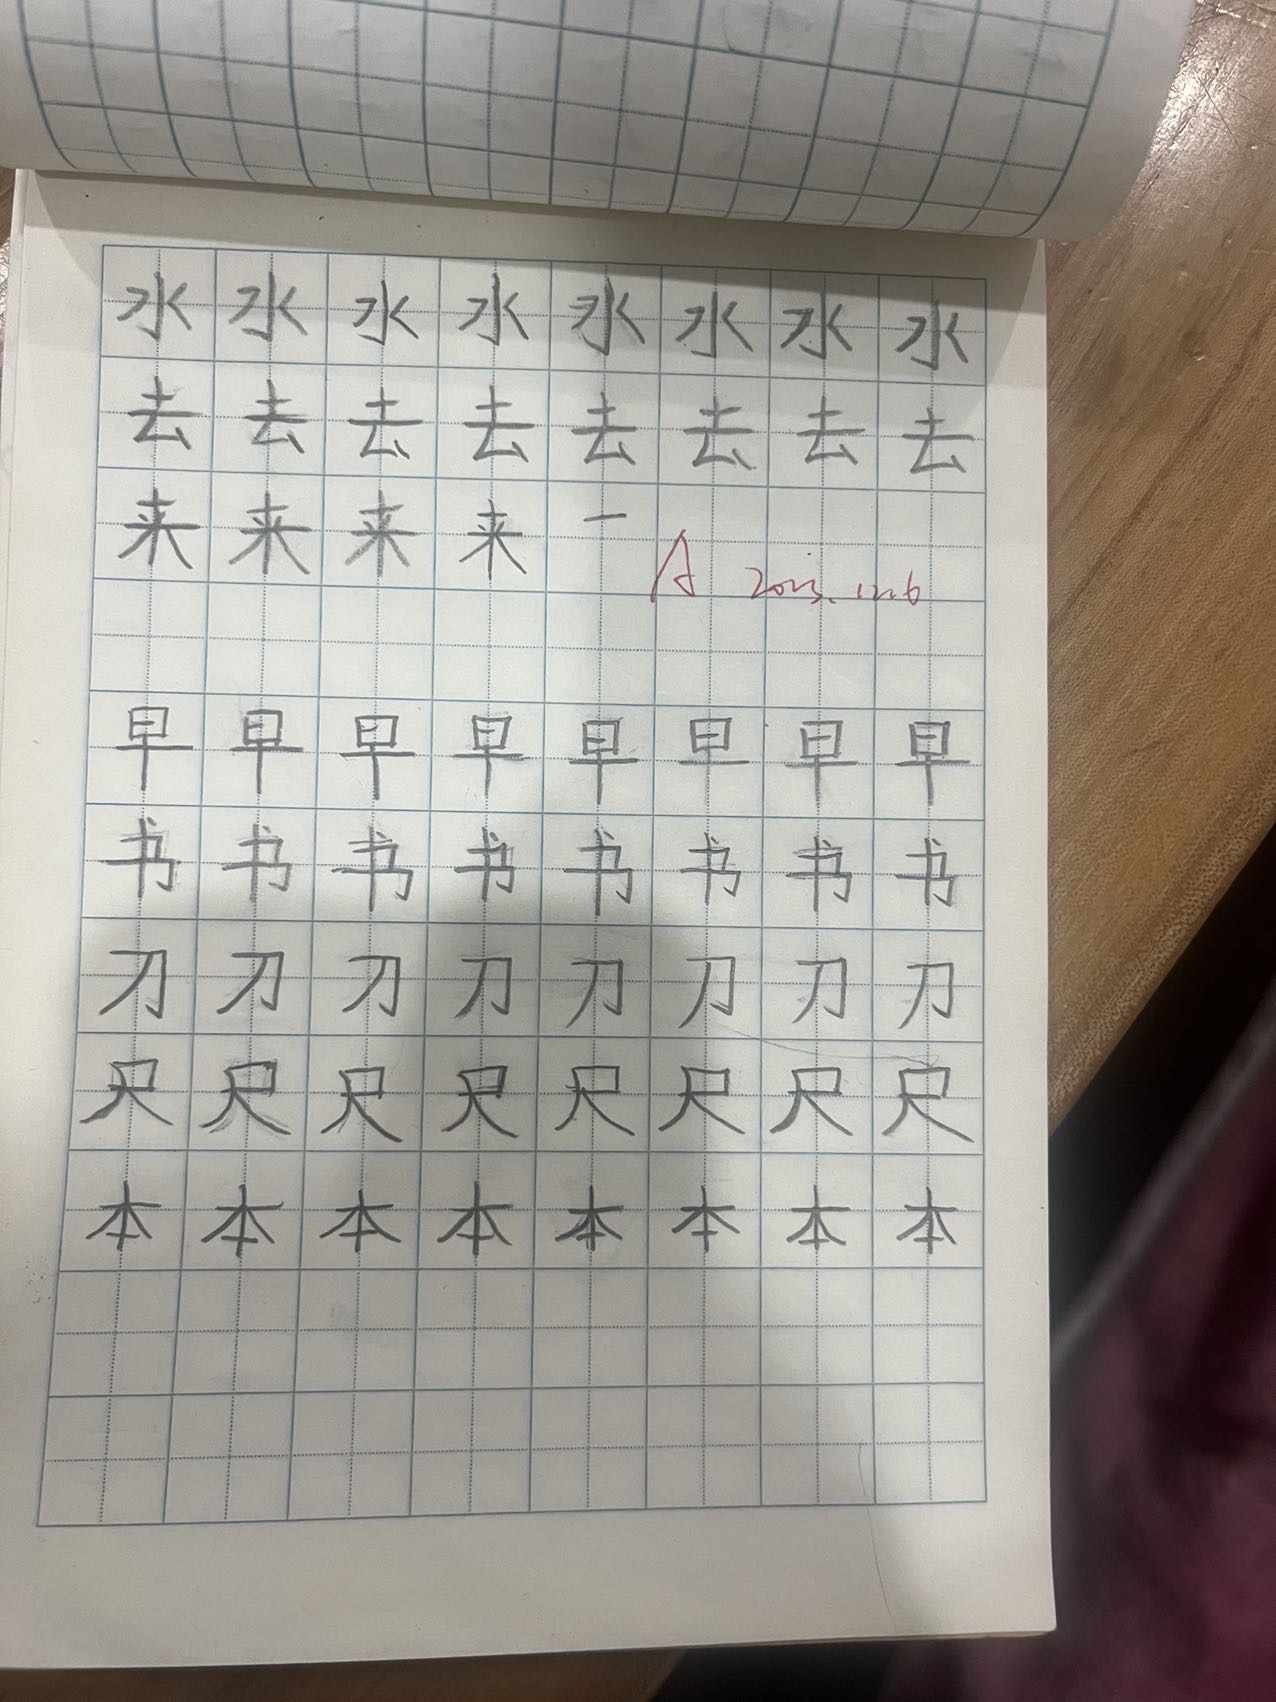 水水水水水水水水
去去去去去去去去
来来来来一
A 2023.12.6
早早早早早早早早
书书书书书书书书
刀刀刀刀刀刀刀刀
尺尺尺尺尺尺尺尺
本本本本本本本本